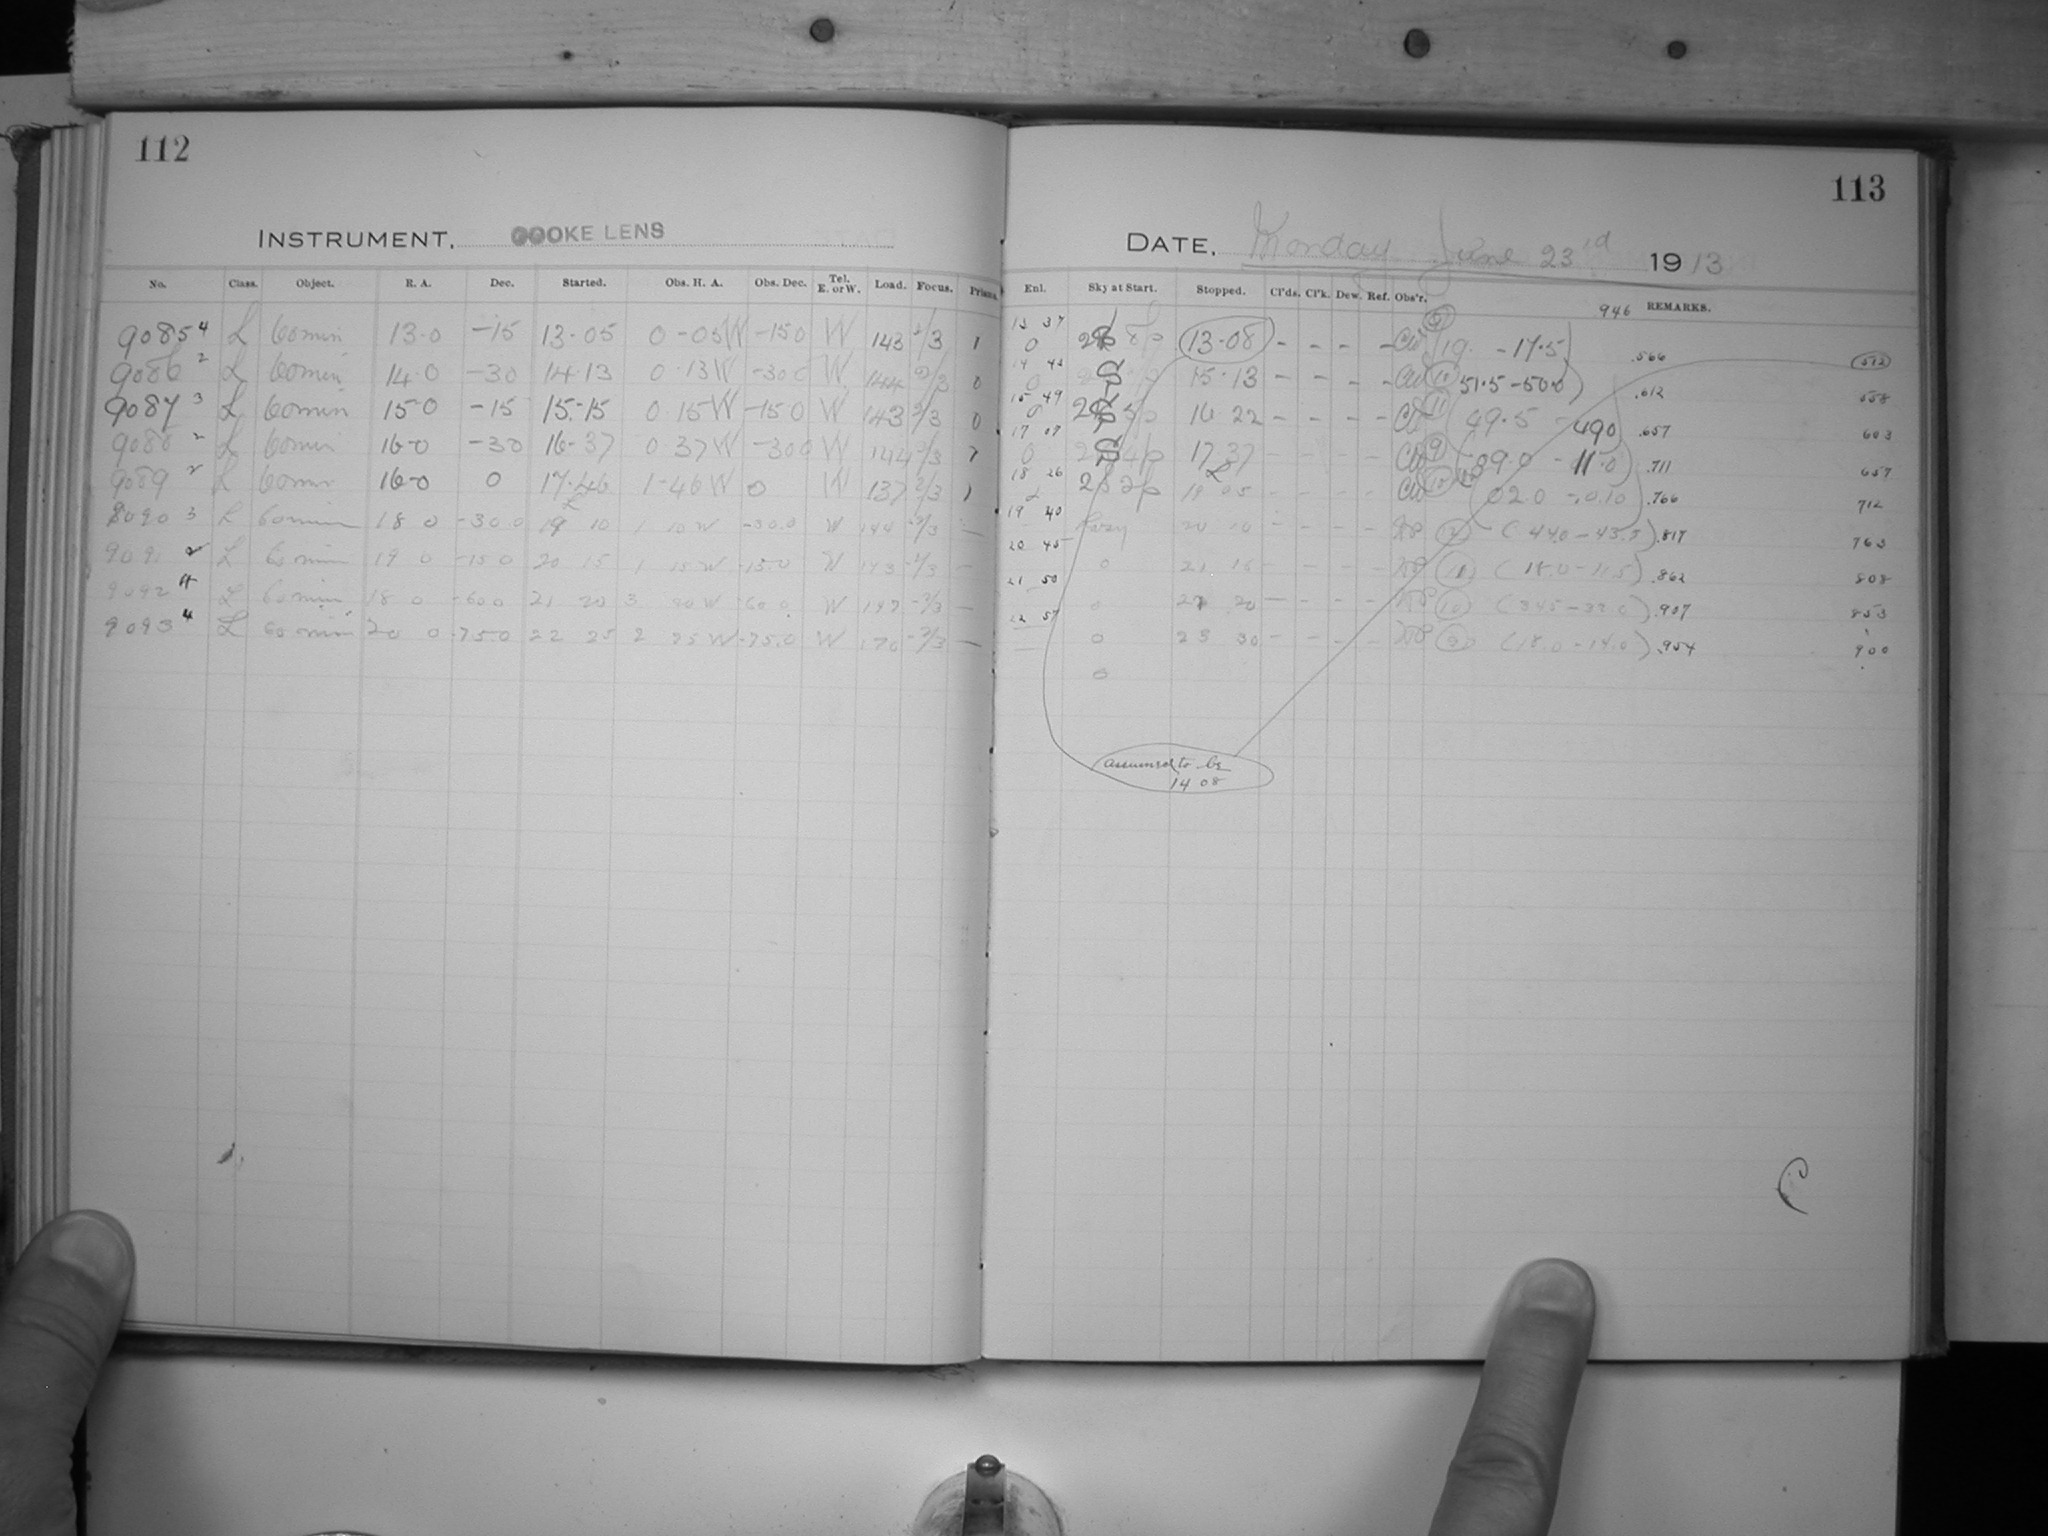 112
INSTRUMENT. COOKE LENS
No. Class. Object. R. A. Dec. Started. Obs. H. A. Obs. Dec. Tel. E. or W. Load. Focus. Prisms.
9085 4 L 60 min 13.0 -15 13.05 0-05W -150 W 143 2/3 1
9086 2 L 60 min 14.0 -30 14.13 0.13W -300 W 144 2/3 0
9087 3 L 60 min 15.0 -15 15.15 0 15W -150 W 143 2/3 0
9088 2 L 60 min 16.0 -30 16-37 0 37W -300 W 144 2/3
9089 2 L 60 min 16-0 0 17.46 1-46W 0 W 137 2/3 1
9090 3 L 60 min 18 0 -30.0 19 10 1 10W -30.0 W 144 -2/3 —
9091 2 L 60 min 19 0 -15 0 20 15 1 15W -15.0 W 143 -2/3 —
9092 4 L 60 min 18 0 -60 0 21 20 3 20W -60.0 W 197 -2/3 —
9093 4 L 60 min 20 0 -75.0 22 25 2 25W -75.0 W 170 -2/3 —
113
DATE. Monday June 23rd 1913
Enl. Sky at Start. Stopped. Cl'ds. Cl'k. Dew. Ref. Obs'r. 946 REMARKS.
13 37
0 8p 13-08 - - - - CW (9) 19. -17.5) .566 512
14 43
0 15.13 - - - - CW (10) 51.5-50.0) .612 558
15 49
0 16 22 - - - - CW (11) (49.5 - 490 .657 603
17 07
0 17 37 - - - - CW (9) (09.0 - 11.0) .711 657
18 26
2p 19 05 - - - - CW (10) (02.0 - 0.10) .766 712
19 40
Hazy 20 10 - - - - (44.0-43.5) .817 763
20 45
0 21 15 - - - - (11) (11.0-11.5) .862 808
21 50
0 22 20 - - - - (10) (34.5-33.0) .907 853
22 57
0 23 30 - - - - (9) (18.0-14.0) .954 900
0
assumed to be
14 08